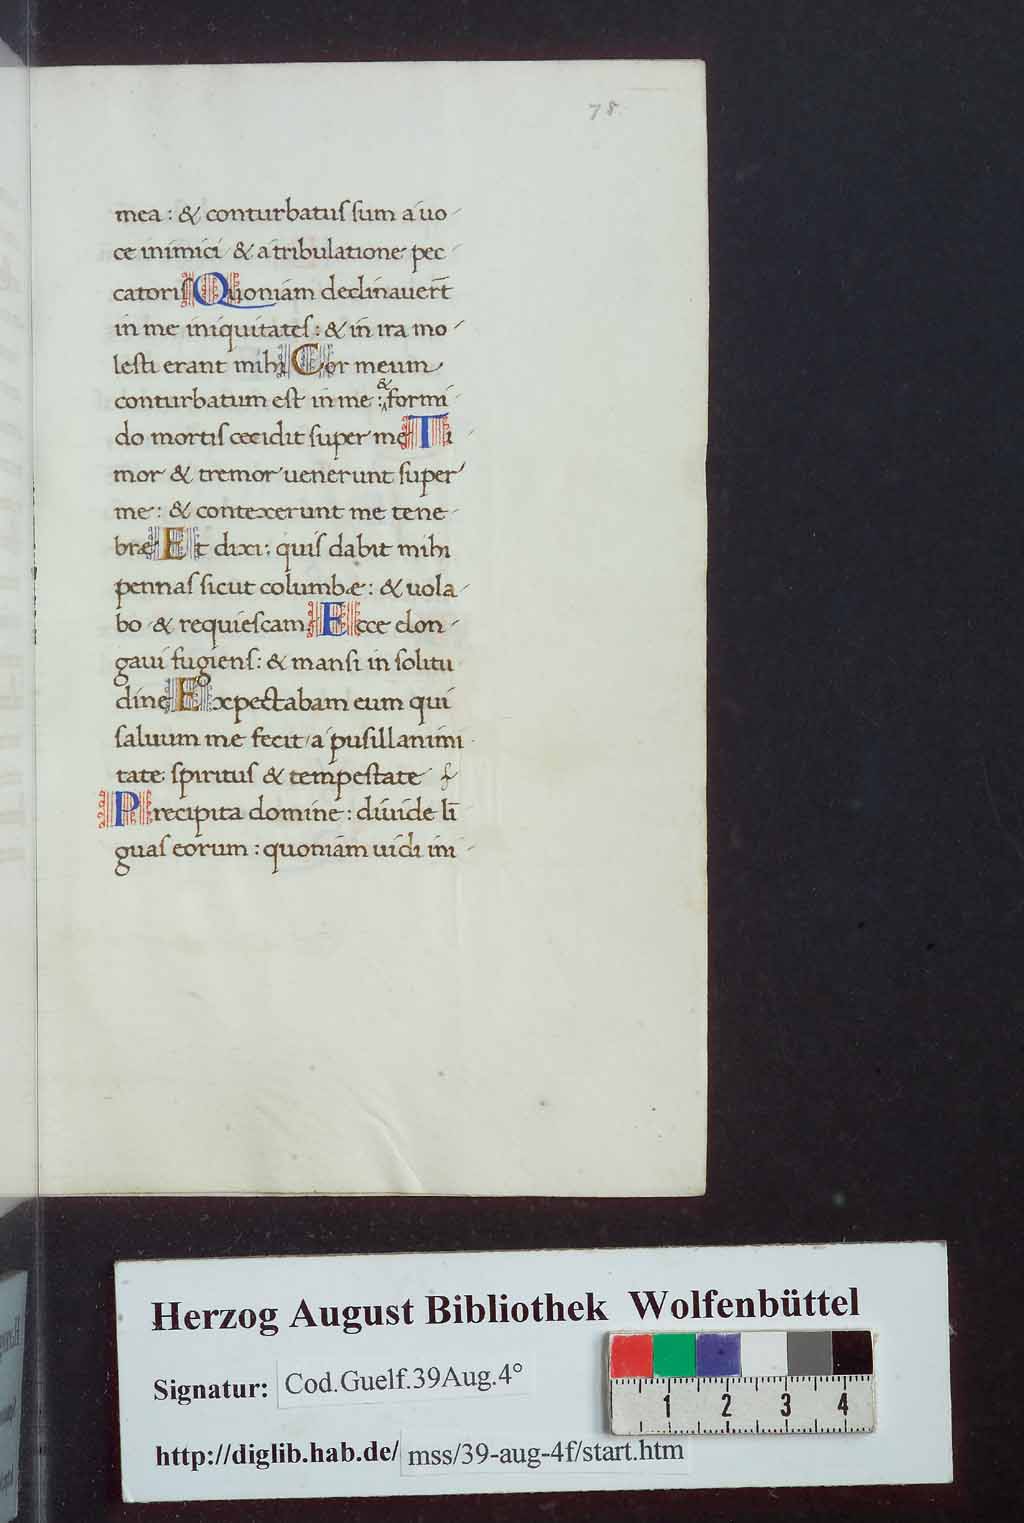 78
mea : & conturbatus sum a uo
ce inimici & a tribulatione pec
catoris Quoniam declinauert̄
in me iniquitates : & in ira mo
lesti erant mihi Cor meum
conturbatum est in me : & formi
do mortis cecidit super me Ti
mor & tremor uenerunt super
me : & contexerunt me tene
bræ Et dixi : quis dabit mihi
pennas sicut columbæ : & uola
bo & requiescam Ecce elon
gaui fugiens : & mansi in solitu
dine Expectabam eum qui
saluum me fecit a pusillanimi
tate spiritus & tempestate
Precipita domine : diuide li̅
guas eorum : quoniam uidi ini
Herzog August Bibliothek Wolfenbüttel
Signatur: Cod.Guelf.39Aug.4°
1 2 3 4
http://diglib.hab.de/ mss/39-aug-4f/start.htm